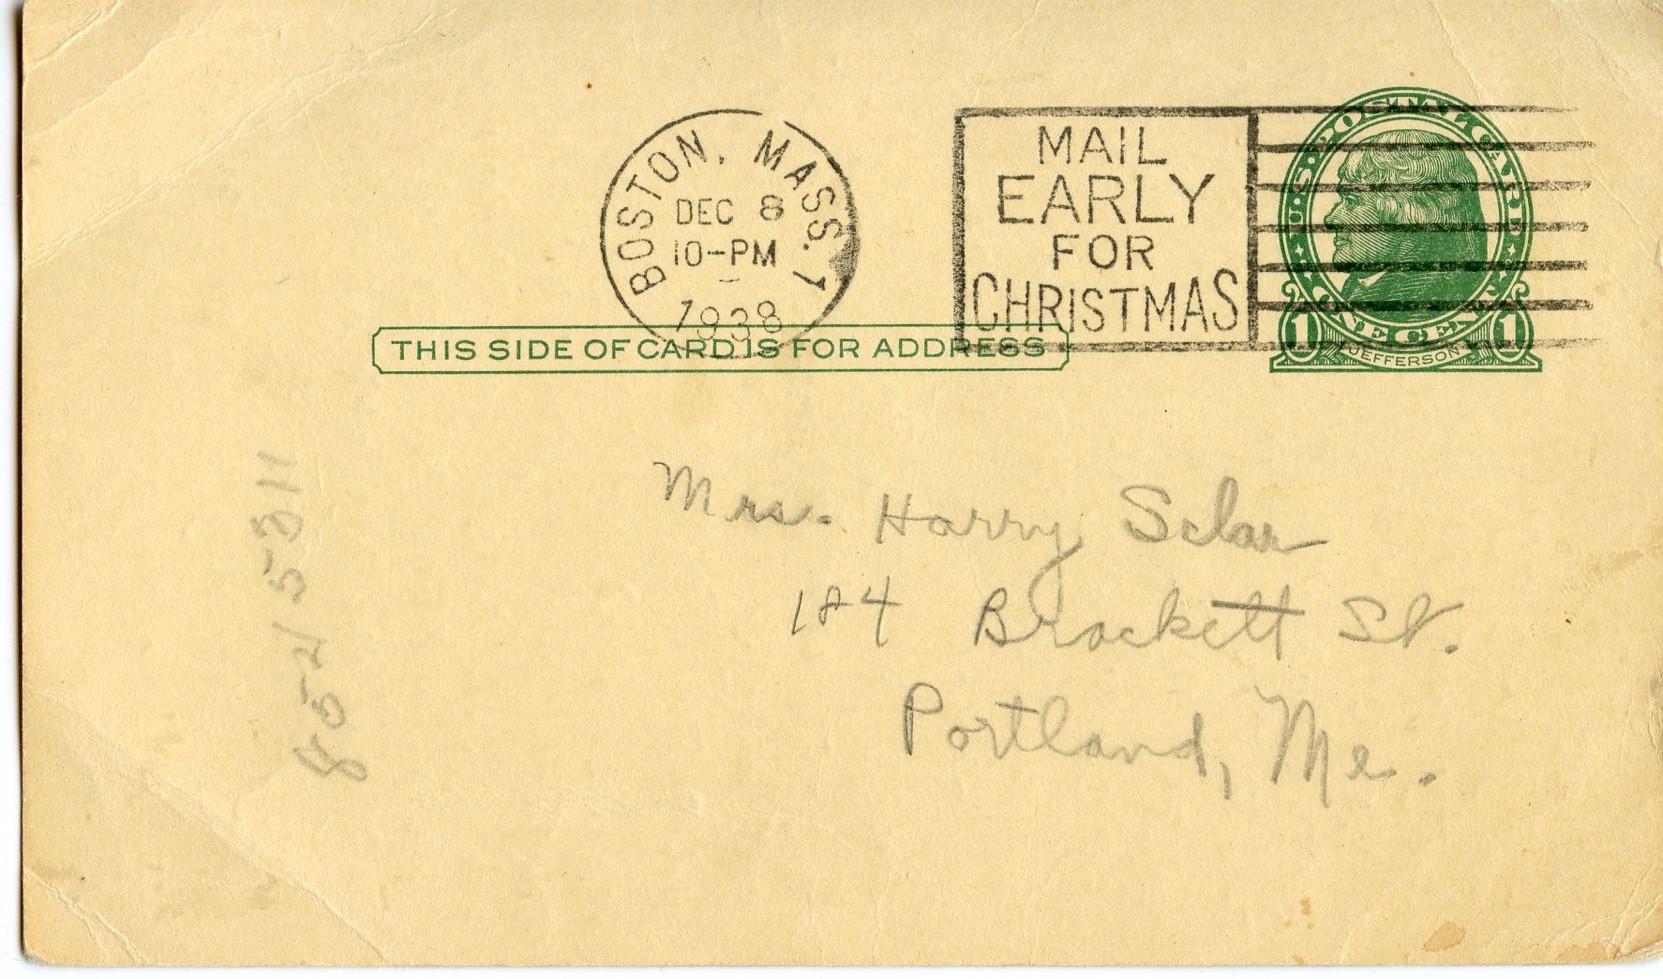 BOSTON, MASS. 1
DEC 8
10-PM
1938
MAIL
EARLY
FOR
CHRISTMAS
U·S·POSTAL CARD
ONE CENT
1 JEFFERSON 1
THIS SIDE OF CARD IS FOR ADDRESS
Mrs. Harry Sclar
184 Brackett St.
Portland, Me.